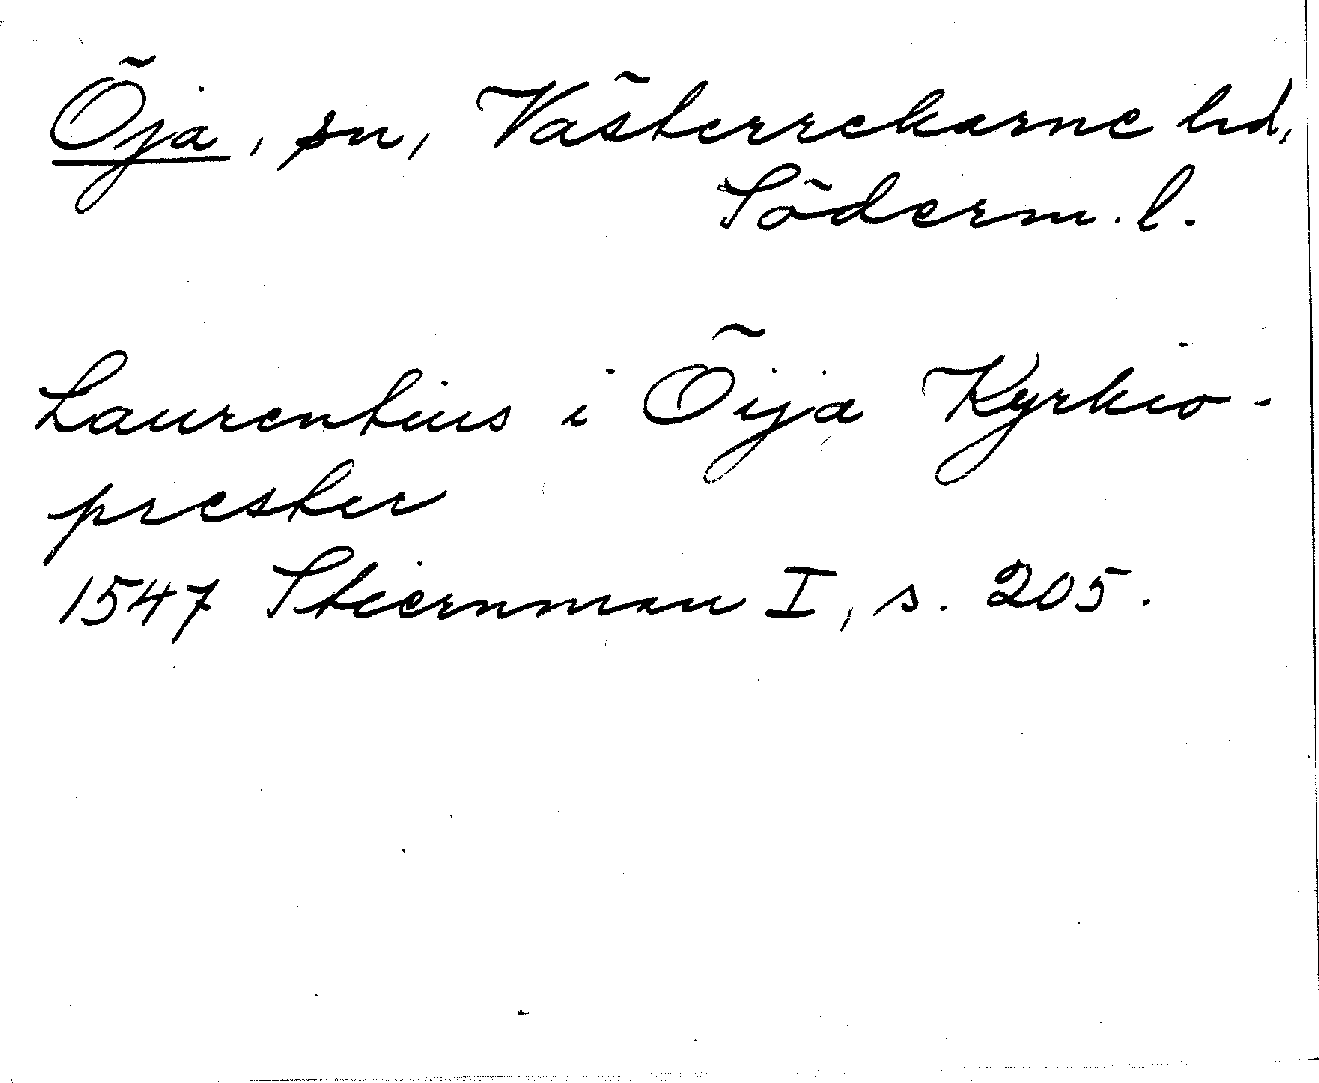 Öja, sn, Västerrekarne hd,
Söderm. l.
Laurentius i Öija Kyrkio-
prester
1547 Stiernman I, s. 205.